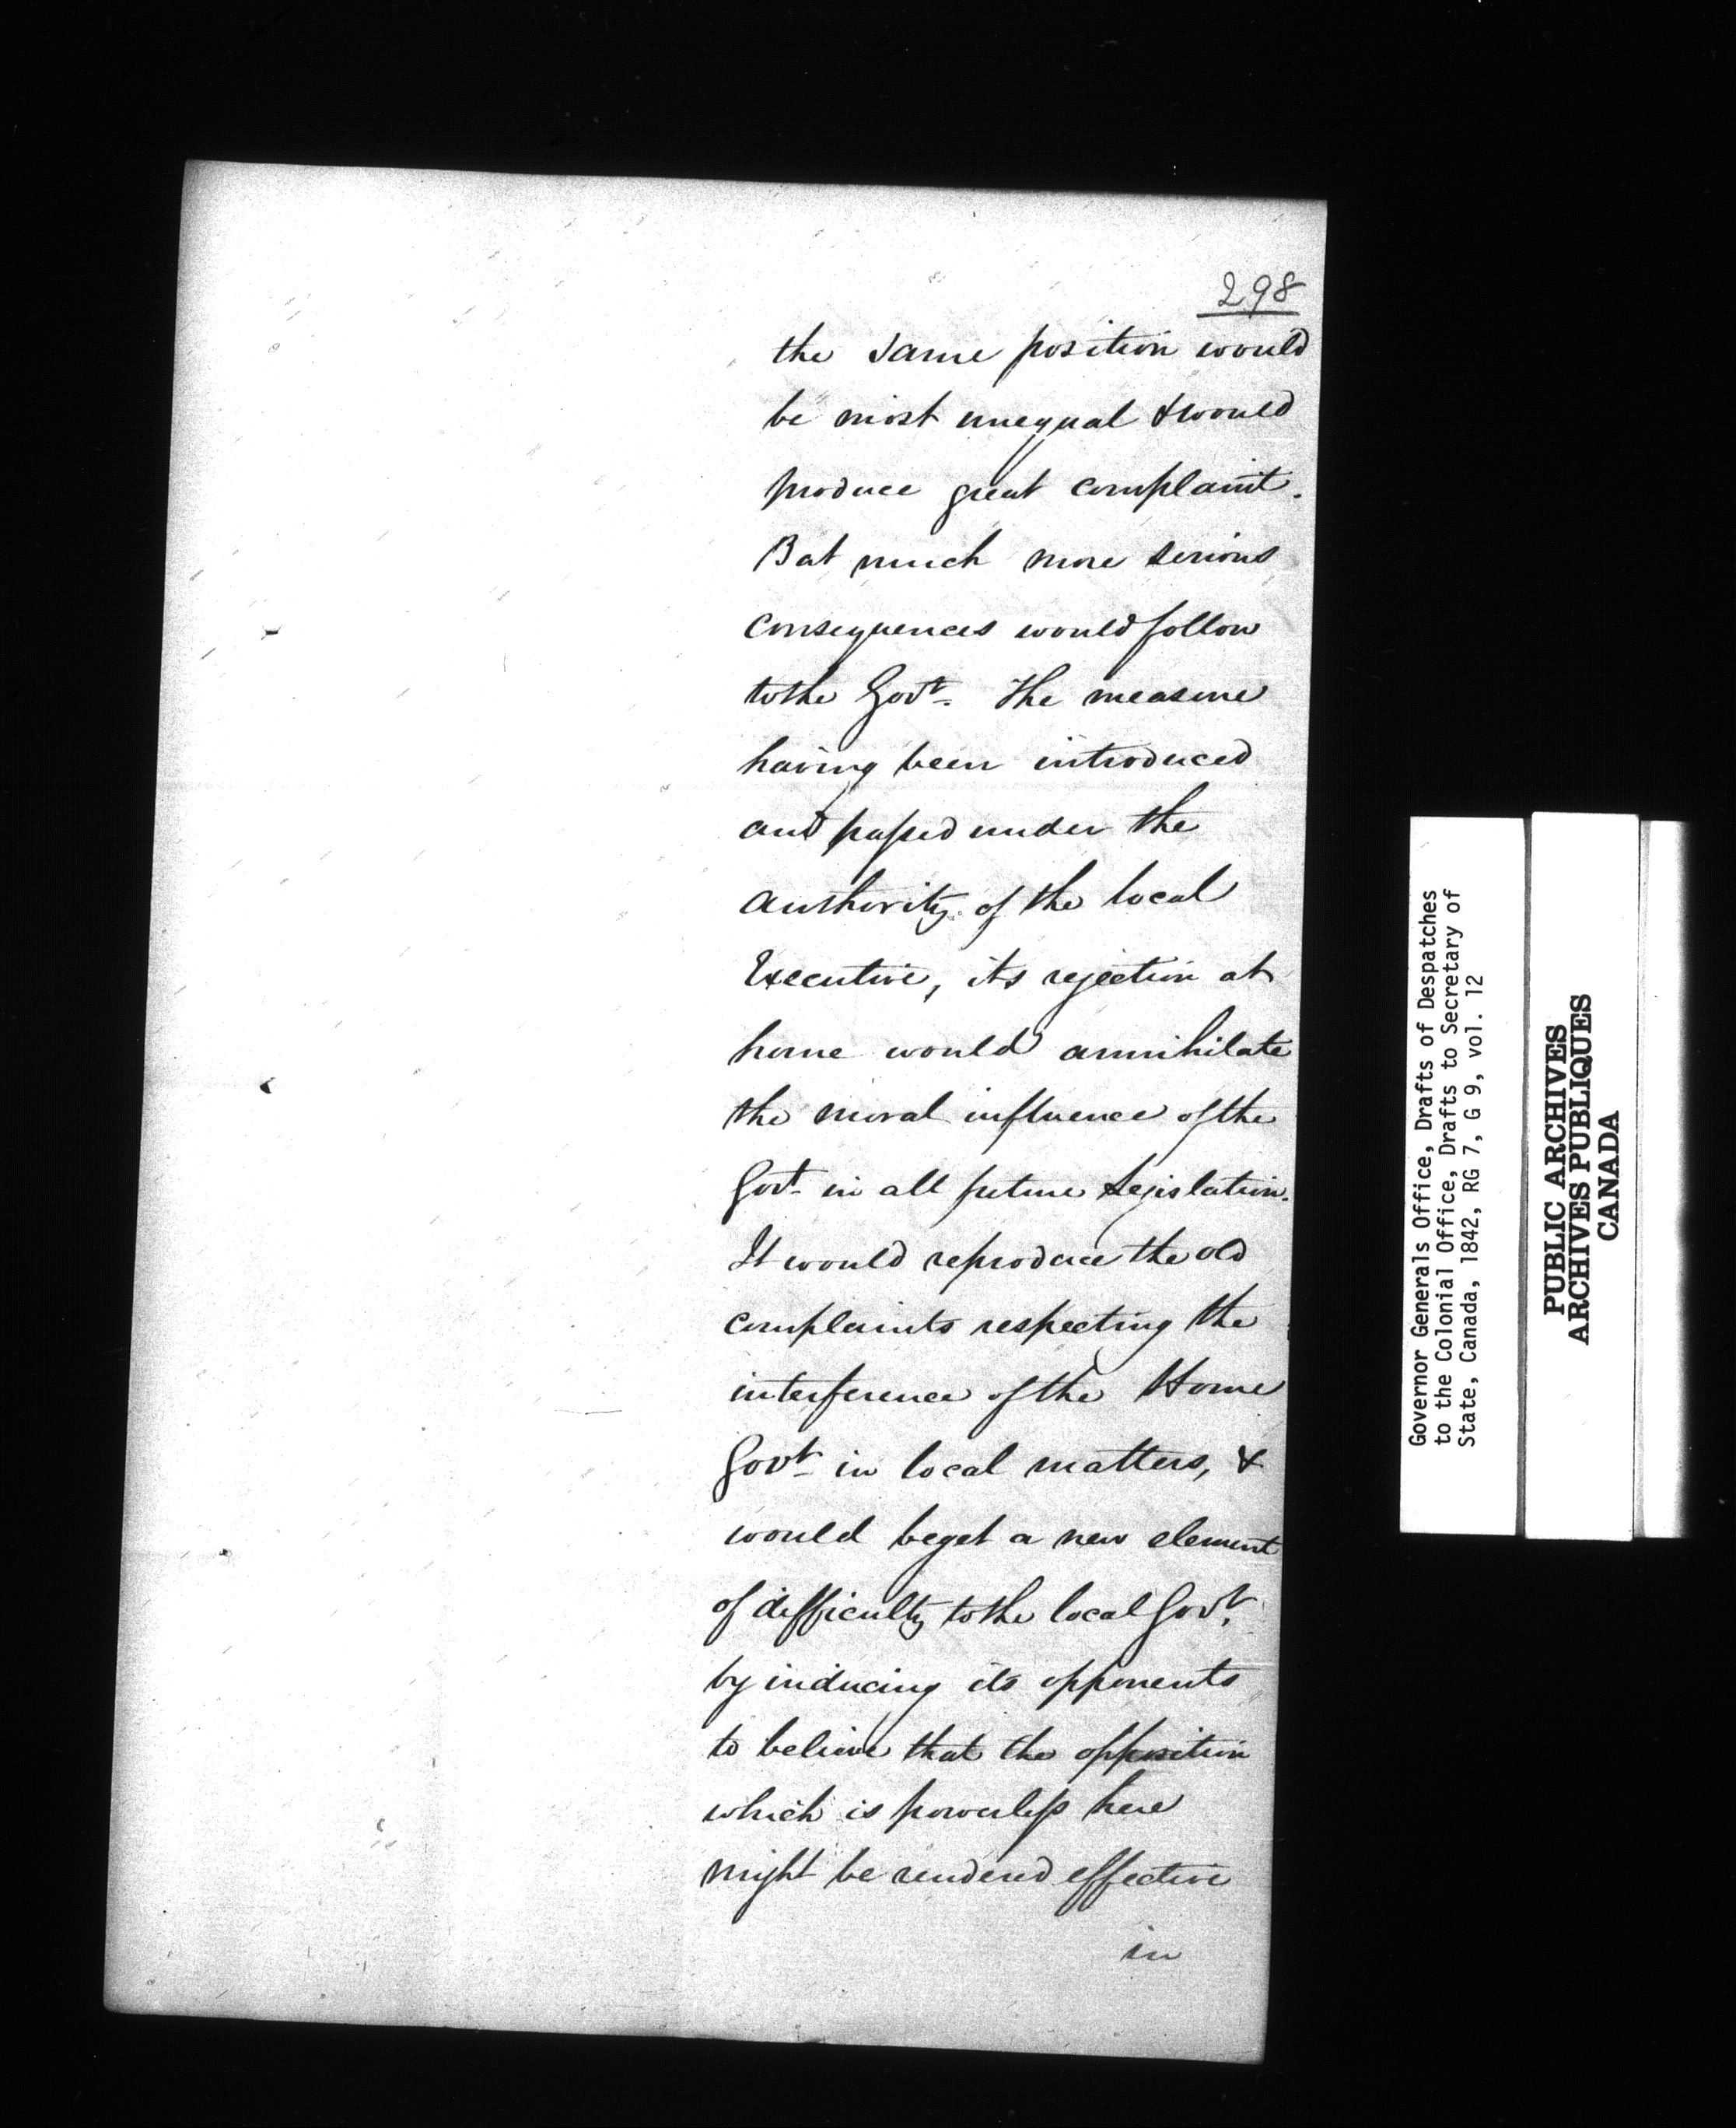 298
the same position would
be most unequal & would
produce great complaint.
But much more serious
consequences would follow
to the Govt. The measure
having been introduced
and passed under the
authority of the local
Executive, its rejection at
home would annihilate
the moral influence of the
Govt. in all future Legislation.
It would reproduce the old
complaints respecting the
interference of the Home
Govt. in local matters, &
would beget a new element
of difficulty to the local Govt.
by inducing its opponents
to believe that the opposition
which is powerless here
might be rendered effective
in
Governor Generals Office, Drafts of Despatches
to the Colonial Office, Drafts to Secretary of
State, Canada, 1842, RG 7, G 9, vol. 12
PUBLIC ARCHIVES
ARCHIVES PUBLIQUES
CANADA